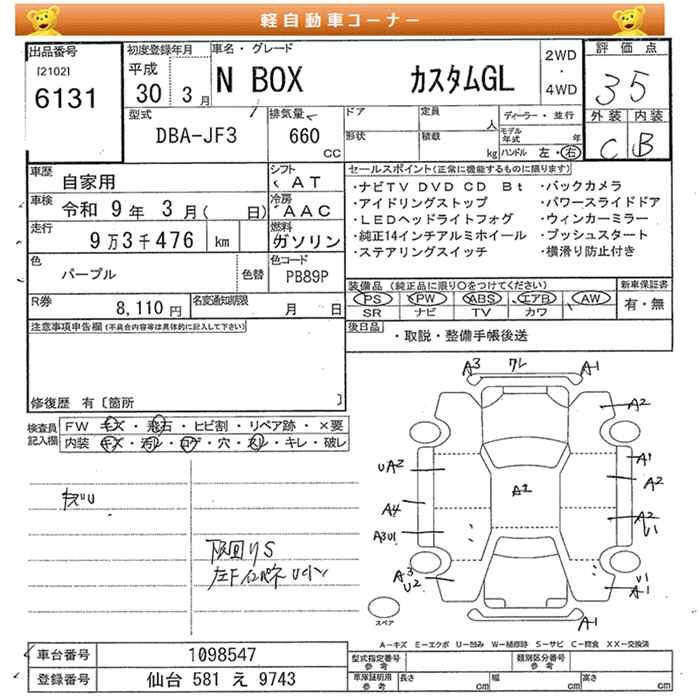 軽自動車コーナー
出品番号
[2102]
6131
初度登録年月
平成
30 3月
車名・グレード
N BOX カスタムGL
2WD
・
4WD
評価点
35
外装 内装
C B
型式
DBA-JF3
排気量
660
CC
ドア
定員
人
形状
積載
kg
ディーラー・並行
モデル年式 年
ハンドル 左・右
車歴
自家用
シフト
AT
車検
令和 9年 3月( 日)
冷房
AAC
走行
9万3千476 km
燃料
ガソリン
色
パープル
色替
色コード
PB89P
R券
8,110円
名変通知期限
月 日
セールスポイント(正常に機能するものに限ります)
・ナビTV DVD CD Bt ・バックカメラ
・アイドリングストップ ・パワースライドドア
・LEDヘッドライトフォグ ・ウィンカーミラー
・純正14インチアルミホイール ・プッシュスタート
・ステアリングスイッチ ・横滑り防止付き
装備品 (純正品に限り○をつけてください)
新車保証書
PS PW ABS エアB AW
SR ナビ TV カワ
有・無
後日品
・取説・整備手帳後送
注意事項申告欄(不具合内容等は具体的に記入して下さい)
修復歴 有〔箇所 〕
検査員
記入欄
FW キズ・飛石・ヒビ割・リペア跡・×要
内装 キズ・汚レ・コゲ・穴・スレ・キレ・破レ
キズU
下回りS
A3 ワレ A1
A2
A1
UA2
A2
A2
A4
A2
U1
A3U1
A3
U2
U1
A1
A1
スペア
A-キズ E-エクボ U-凹み W-補修跡 S-サビ C-腐食 XX-交換済
車台番号
1098547
登録番号
仙台 581 え 9743
型式指定番号
参考
類別区分番号
参考
車庫証明用
参考
長さ cm
幅 cm
高さ cm